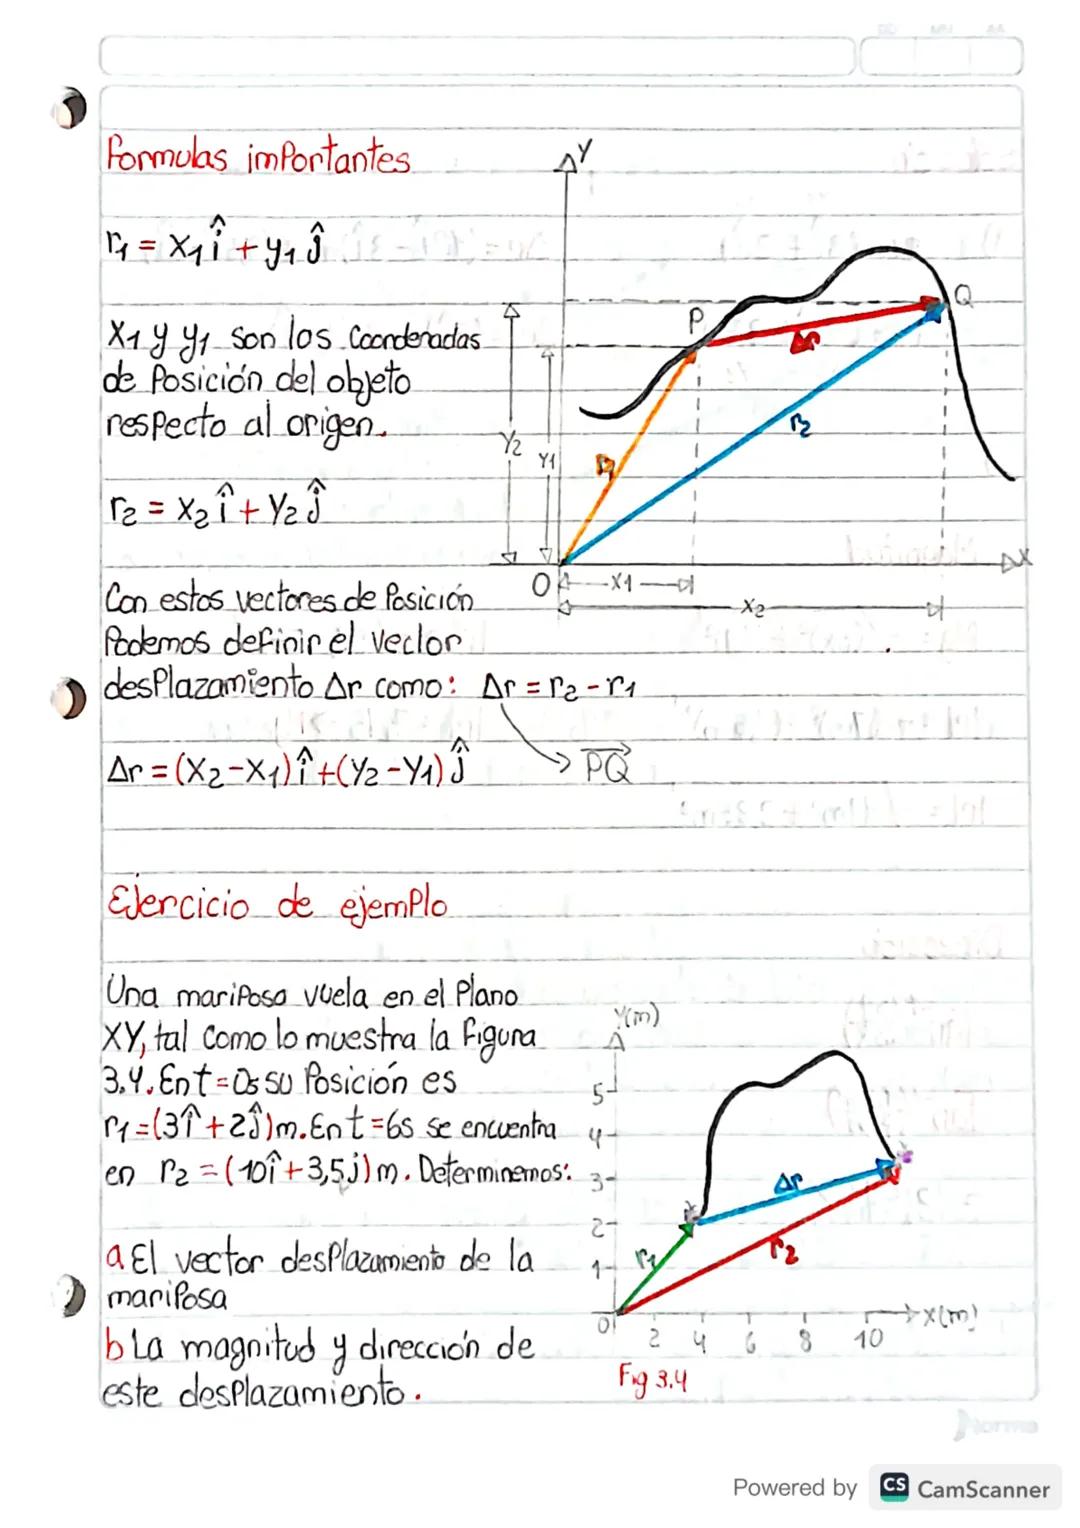 Formulas importantes
r1 = x1 î + y1 ĵ
X1 y y1 son las Coordenadas
de Posición del objeto
respecto al origen.
r2 = x2 î + Y2 ĵ
Con estos vectores de Posición
Podemos definir el vector
desplazamiento Δr como: Δr = r2 - r1
Δr = (X2-X1) î + (Y2-Y1) ĵ
PQ
Y
P
Q
Δr
r2
r1
Y2
Y1
O
X1
X2
X
Ejercicio de ejemplo
Una mariposa vuela en el Plano
XY, tal como lo muestra la figura
3.4. En t=0s su Posición es
r1 = (3î + 2ĵ)m. En t = 6s se encuentra
en r2 = (10î + 3,5j) m. Determinemos:
a El vector desplazamiento de la
mariposa
b La magnitud y dirección de
este desplazamiento.
Y(m)
5
4
3
2
1
0
Δr
r1
r2
2 4 6 8 10
x(m)
Fig 3.4
Norma
Powered by CS CamScanner